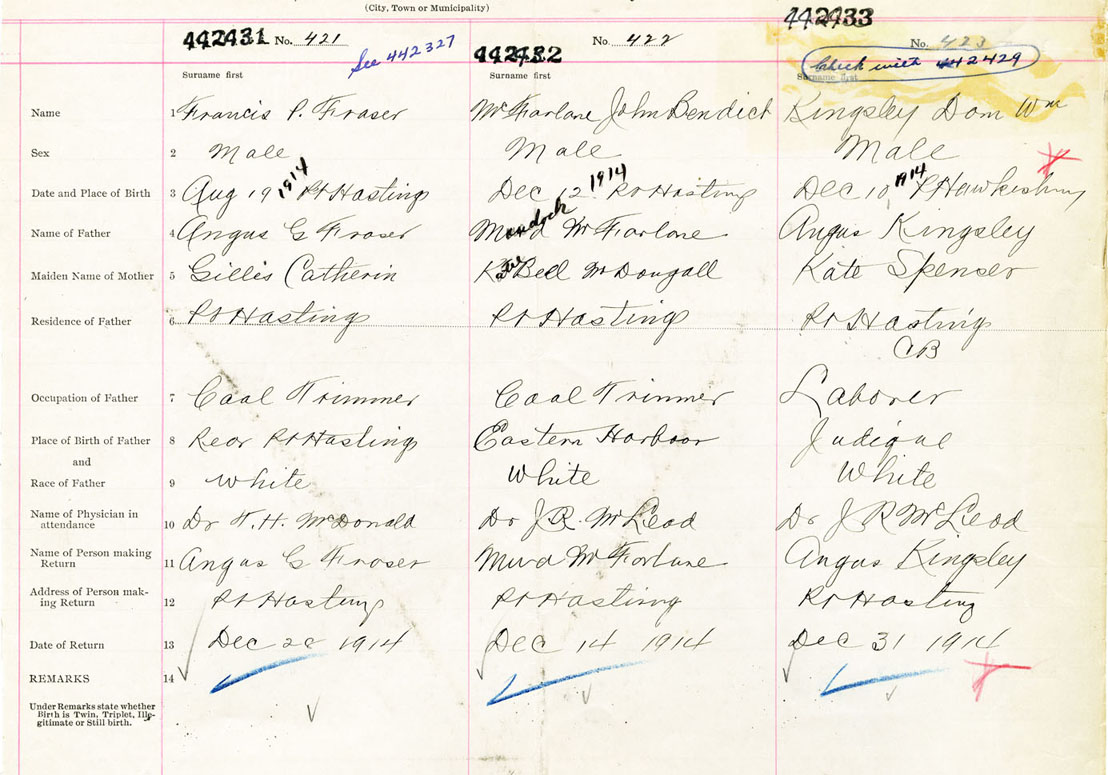 (City, Town or Municipality)
442431 No. 421 See 442327 442432 No. 422 442433 No. 423
Check with 442429
Surname first Surname first Surname first
Name 1 Francis P. Fraser McFarlane John Bendict Kingsley Dom Wm
Sex 2 Male Male Male
Date and Place of Birth 3 Aug 19 1914 Pt Hasting Dec 12 1914 Pt Hasting Dec 10 1914 P Hawkesbury
Name of Father 4 Angus G Fraser Murdoch McFarlane Angus Kingsley
Maiden Name of Mother 5 Gillis Catherin Bell McDougall Kate Spenser
Residence of Father 6 Pt Hasting Pt Hasting Pt Hasting
CB
Occupation of Father 7 Coal Trimmer Coal Trimmer Laborer
Place of Birth of Father 8 Rear Pt Hastings Eastern Harbour Judique
and
Race of Father 9 White White White
Name of Physician in
attendance 10 Dr T. H. McDonald Dr J. R. McLeod Dr J R McLeod
Name of Person making
Return 11 Angus G Fraser Murd McFarlane Angus Kingsley
Address of Person mak-
ing Return 12 Pt Hasting Pt Hasting Pt Hasting
Date of Return 13 Dec 28 1914 Dec 14 1914 Dec 31 1914
REMARKS 14
Under Remarks state whether
Birth is Twin, Triplet, Ille-
gitimate or Still birth.